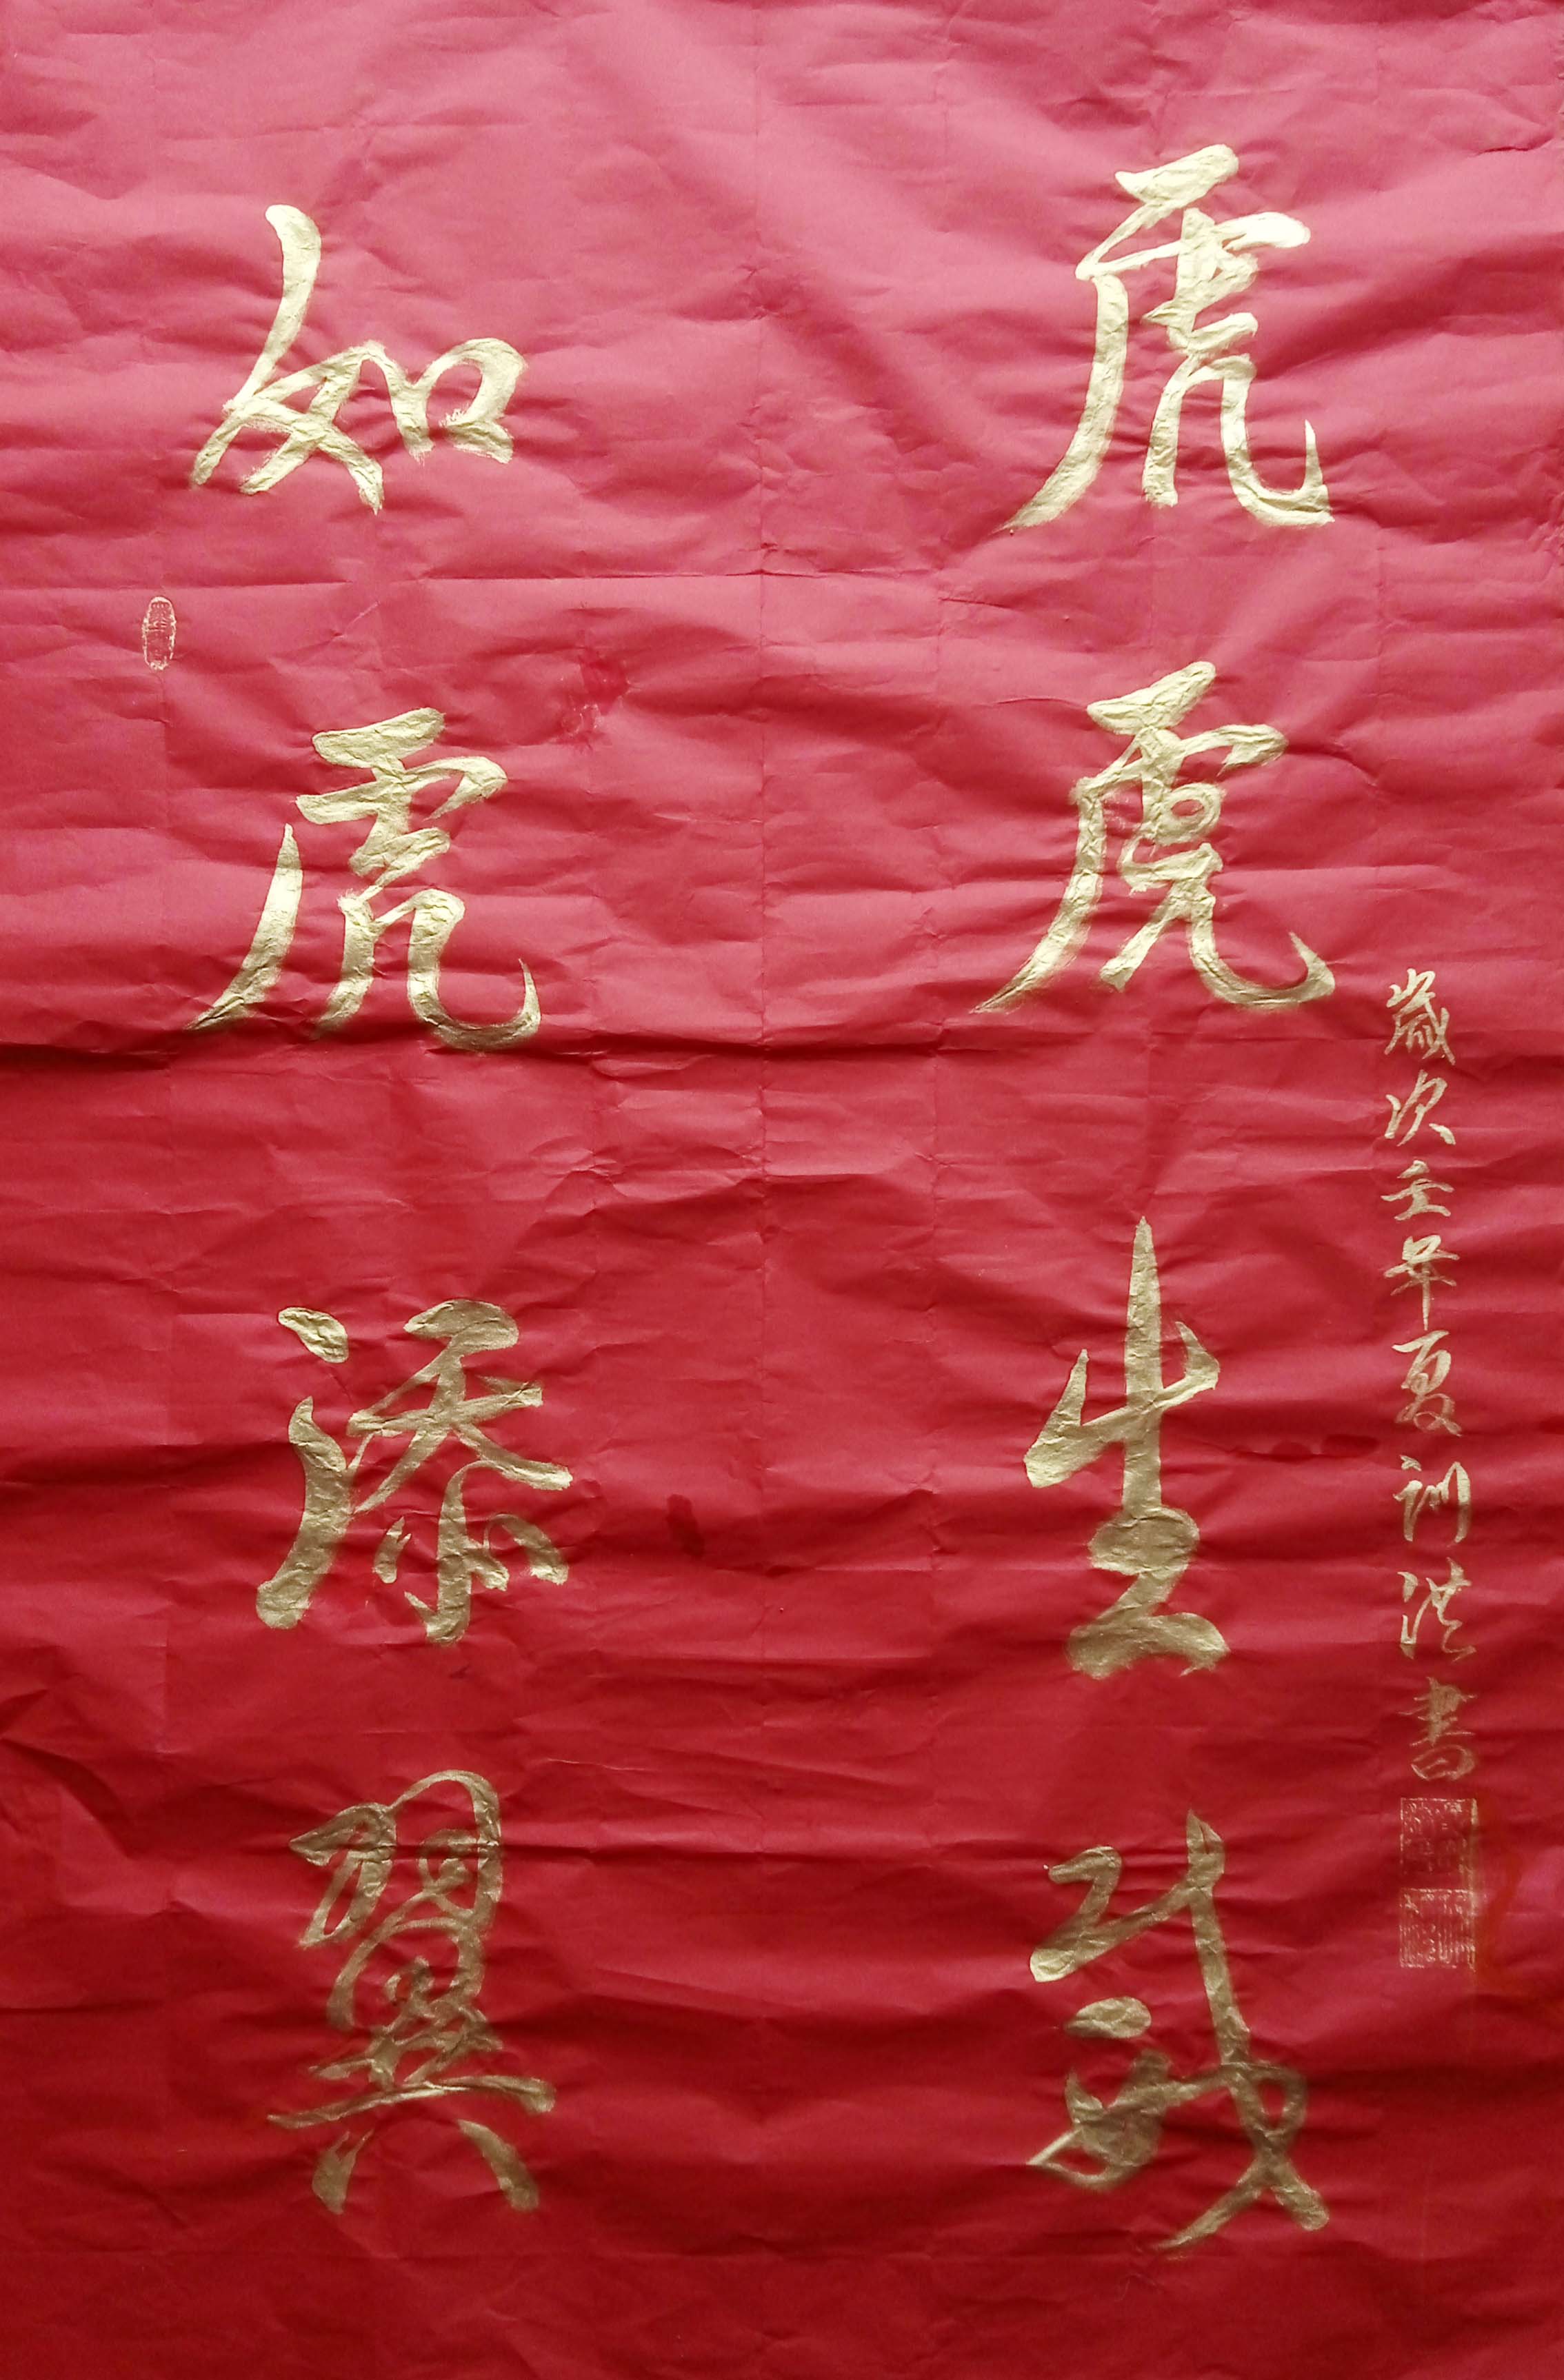 如虎添翼
虎虎生威
歲次壬年夏训洪書